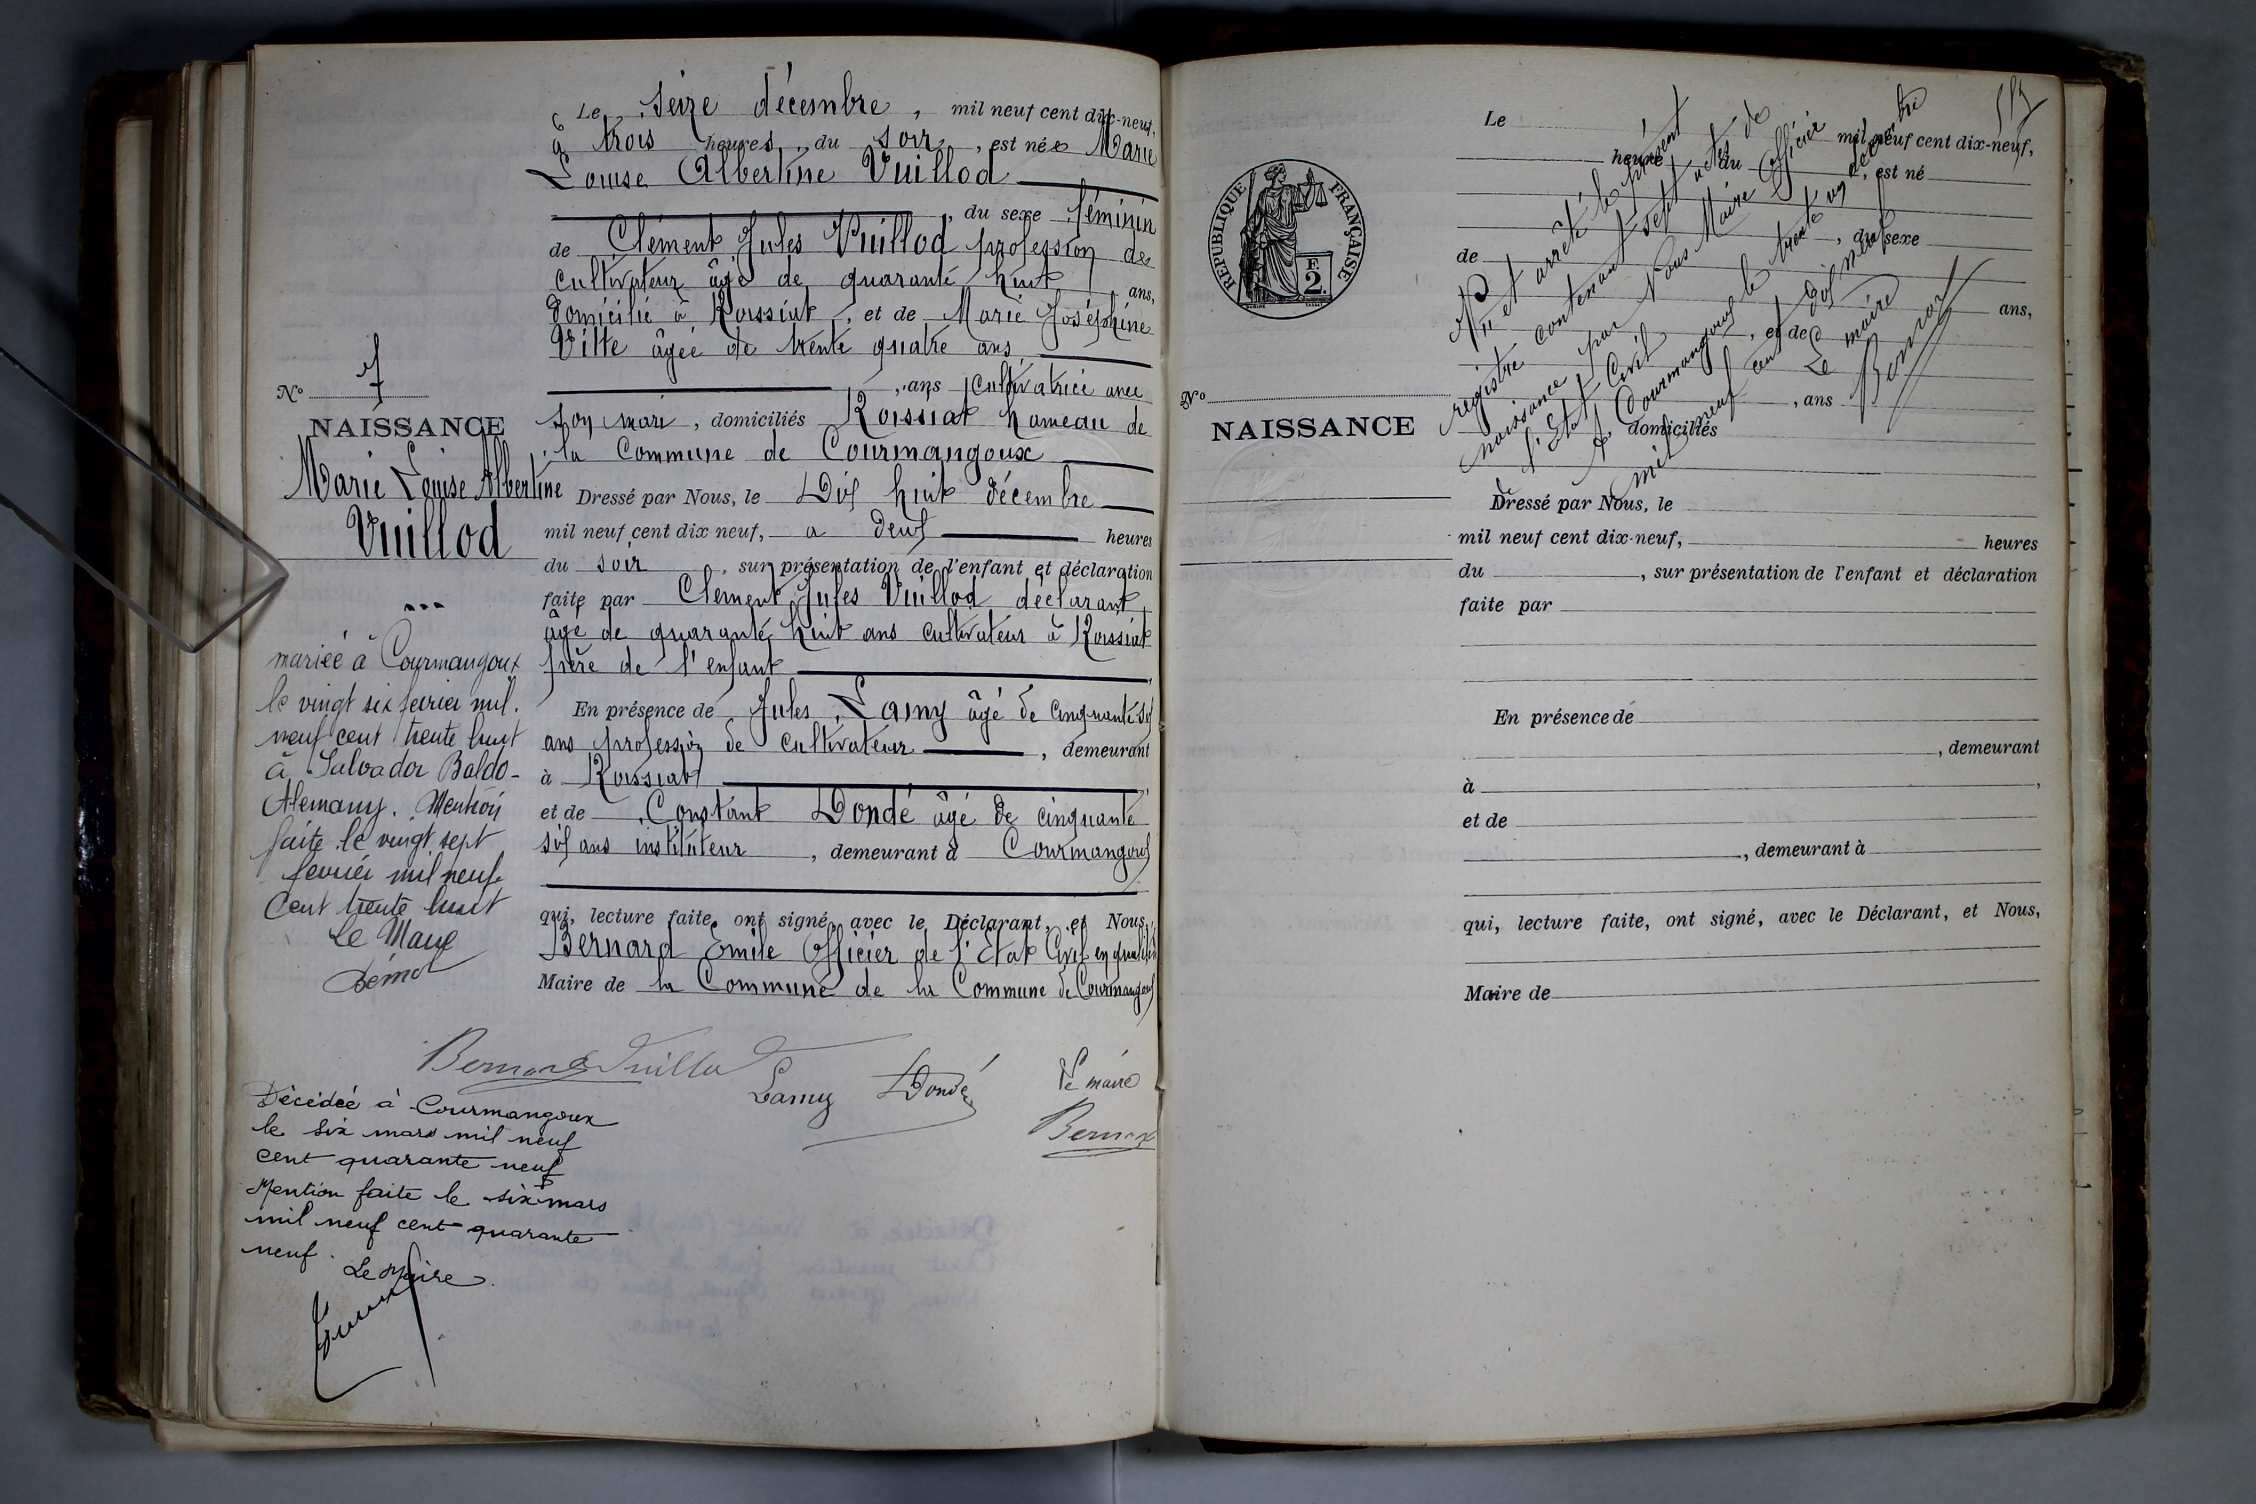 Le seize décembre, mil neuf cent dix-neuf,
à trois heures, du soir, est née Marie
Louise Albertine Vuillod
, du sexe féminin
de Clément Jules Vuillod profession de
cultivateur âgé de quarante huit ans,
domicilié à Roissiat, et de Marie Joséphine
Vitte âgée de trente quatre ans
, ans Cultivatrice avec
son mari, domiciliés Roissiat hameau de
la Commune de Courmangoux
Dressé par Nous, le Dix huit décembre
mil neuf cent dix neuf, a deux heures
du soir, sur présentation de l'enfant et déclaration
faite par Clément Jules Vuillod déclarant
âgé de quarante huit ans cultivateur à Roissiat
père de l'enfant
En présence de Jules Lamy âgé de cinquante six
ans profession de cultivateur, demeurant
à Roissiat
et de Constant Dondé âgé de cinquante
six ans instituteur, demeurant à Courmangoux
qui, lecture faite, ont signé, avec le Déclarant, et Nous,
Bernard Emile Officier de l'Etat Civil en qualité
Maire de la Commune de la Commune de Courmangoux
Bernard Vuillod
Lamy Dondé
Le maire
Bernard
No 7
NAISSANCE
Marie Louise Albertine
Vuillod
mariée à Courmangoux
le vingt six fevrier mil
neuf cent trente huit
à Salvador Baldo-
Alemany. Mention
faite le vingt sept
fevrier mil neuf
Cent trente huit
Le Maire
Décédée à Courmangoux
le six mars mil neuf
cent quarante neuf
Mention faite le six mars
mil neuf cent quarante
neuf.
Le Maire
REPUBLIQUE FRANÇAISE
F.
2.
No
NAISSANCE
Le mil neuf cent dix-neuf,
heure du, est né
, du sexe
de
ans,
, et de
, ans
domiciliés
Dressé par Nous, le
mil neuf cent dix-neuf, heures
du, sur présentation de l'enfant et déclaration
faite par
En présence de
, demeurant
à
et de
, demeurant à
qui, lecture faite, ont signé, avec le Déclarant, et Nous,
Maire de
et arrêté le présent
registre contenant sept actes de
naissance par Nous Maire Officier
de l'Etat Civil
A Courmangoux le trente un décembre
mil neuf cent dix neuf
Le maire
Bernard